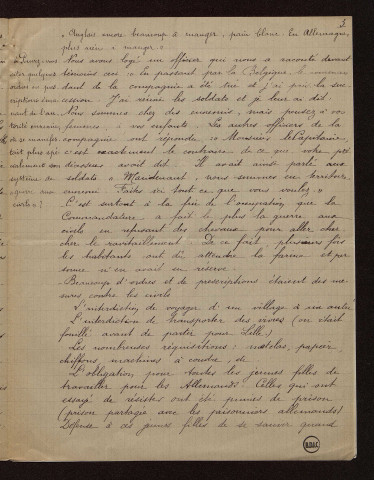 3.
« Anglais encore beaucoup à manger, pain blanc. En Allemagne,
plus rien à manger. »
Nous avons logé un officier qui nous a raconté devant
témoins ceci « En passant par la Belgique, le comman
dant de la compagnie a été tué et j'ai pris la suc-
cession. J'ai réuni les soldats et je leur ai dit:
Nous sommes chez des ennemis mais pensez à vos
femmes, à vos enfants. Les autres officiers de la
compagnie ont répondu « Monsieur le Capitaine,
c'est exactement le contraire de ce que votre pré-
décesseur avait dit. Il avait ainsi parlé aux
soldats « Maintenant, nous sommes en territoire
ennemi. Faites ici tout ce que vous voulez. »
C'est surtout à la fin de l'occupation que la
Commandature a fait le plus la guerre aux
civils en refusant des chevaux pour aller cher
cher le ravitaillement. De ce fait, plusieurs fois
les habitants ont dû attendre la farine et per
sonne n'en avait en réserve.
Beaucoup d'ordres et de prescriptions étaient des me
sures contre les civils
L'interdiction de voyager d'un village à un autre
L'interdiction de transporter des vivres (on était
fouillé avant de partir pour Lille)
Les nombreuses réquisitions: matelas, papier
chiffons, machines à coudre, etc
L'obligation, pour toutes les jeunes filles de
travailler pour les Allemands. Celles qui ont
essayé de résister ont été punies de prison
(prison partagée avec les prisonniers allemands)
Défense à ces jeunes filles de se sauver quand